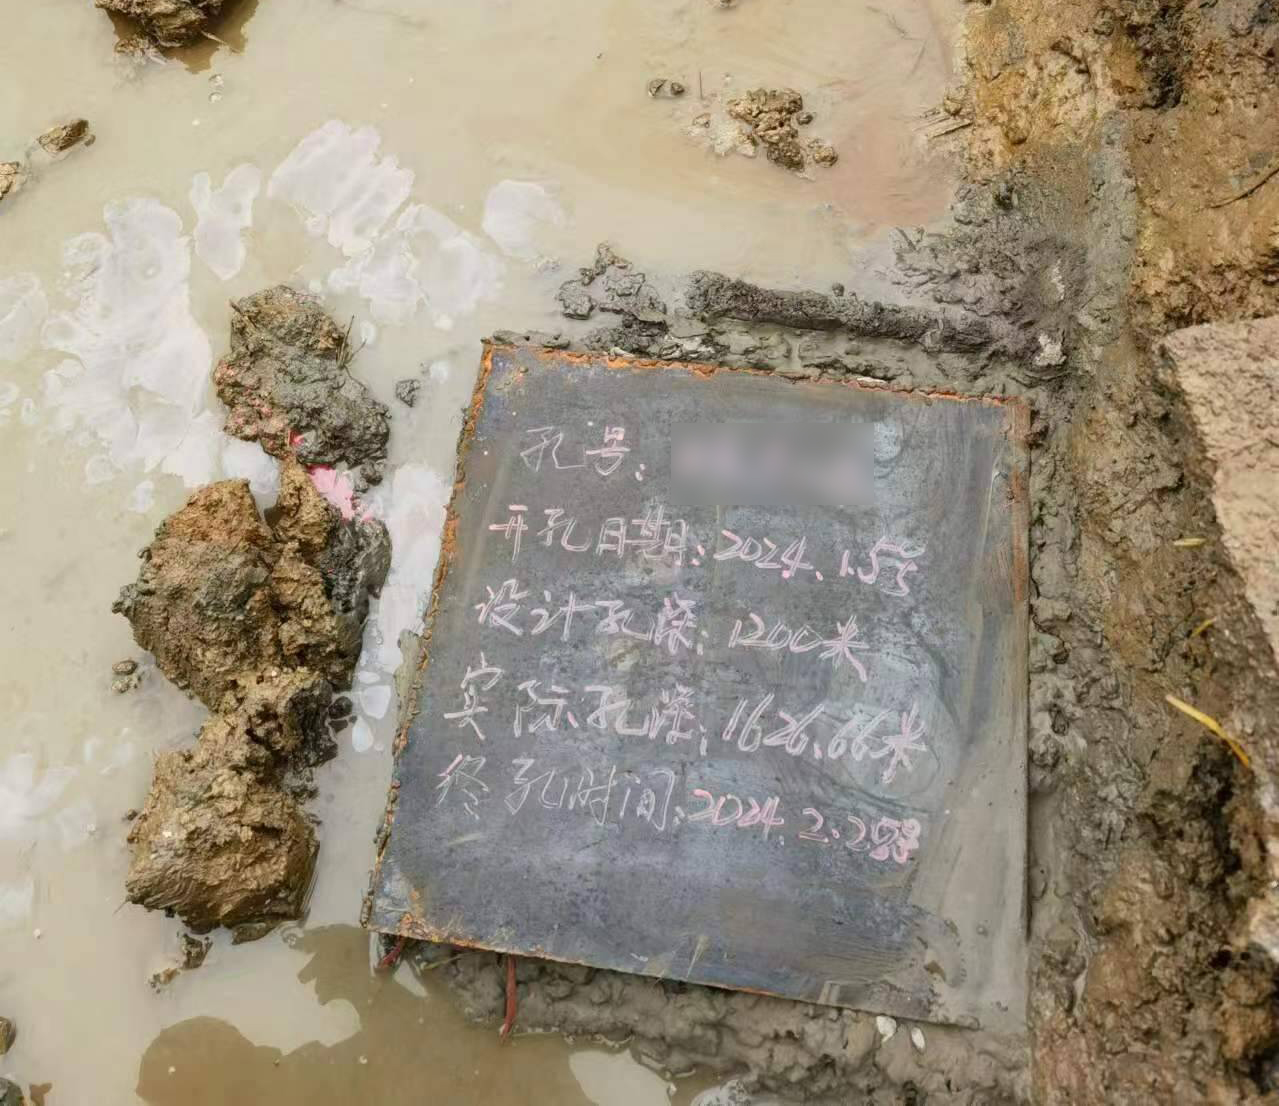 孔号:
开孔日期:2024.1.5号
设计孔深:1200米
实际孔深:1626.66米
终孔时间:2024.2.25号